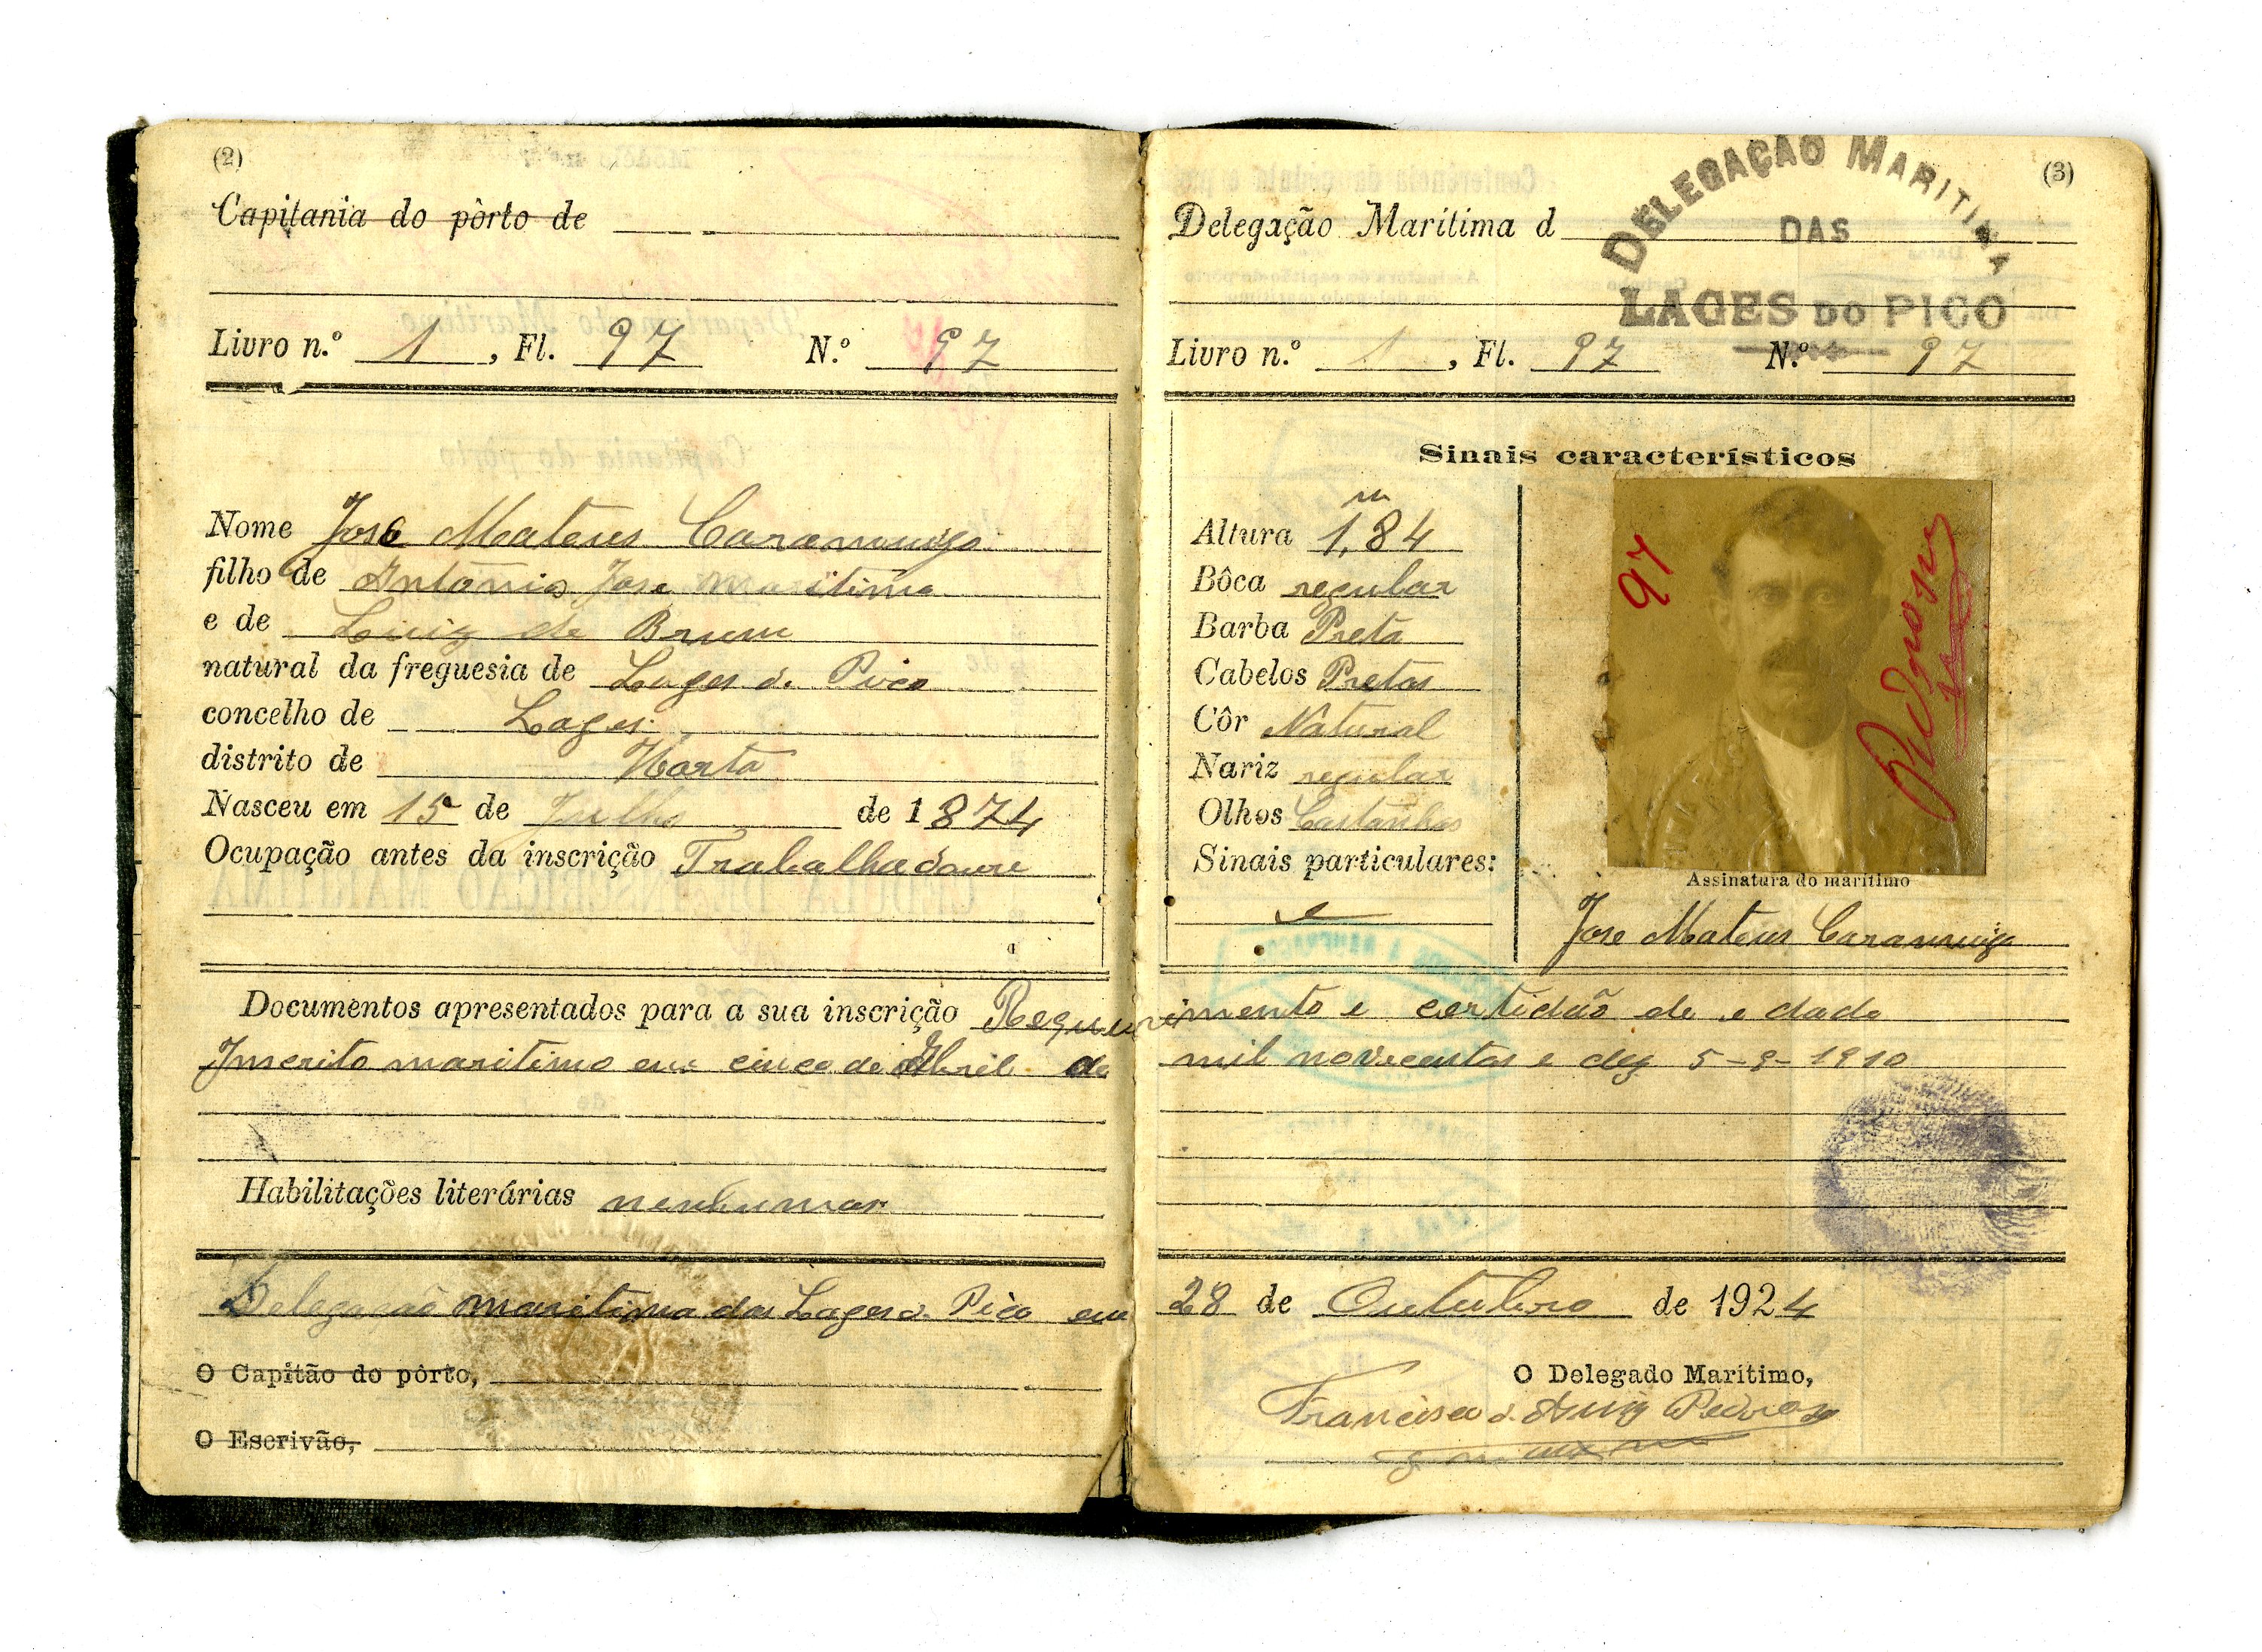 (2)
Capitania do pôrto de
Livro n.º 1, Fl. 97 N.º 97
Nome José Mateus
filho de Antonio Jose maritimo
e de Luiz de Brum
natural da freguesia de Lages d. Pico
concelho de Lages
distrito de Horta
Nasceu em 15 de Julho de 1874
Ocupação antes da inscrição Trabalhadour
Documentos apresentados para a sua inscrição Requerimento e certidão de edade
Inscrito maritimo em cinco de Abril de mil novecentos e dez 5-9-1910
Habilitações literárias nenhumas
Delegação maritima das Lages d. Pico em 28 de Outubro de 1924
O Capitão do pôrto,
O Escrivão,
(3)
Delegação Marítima d
DELEGAÇÃO MARITIMA
DAS
LAGES DO PICO
Livro n.º 1, Fl. 97 N.º 97
Sinais característicos
Altura 1,84 m
Bôca regular
Barba Preta
Cabelos Pretos
Côr Natural
Nariz regular
Olhos Castanhos
Sinais particulares:
97
Pedroso
Assinatura do marítimo
Jose Mateus
O Delegado Marítimo,
Francisco d. Pedroso